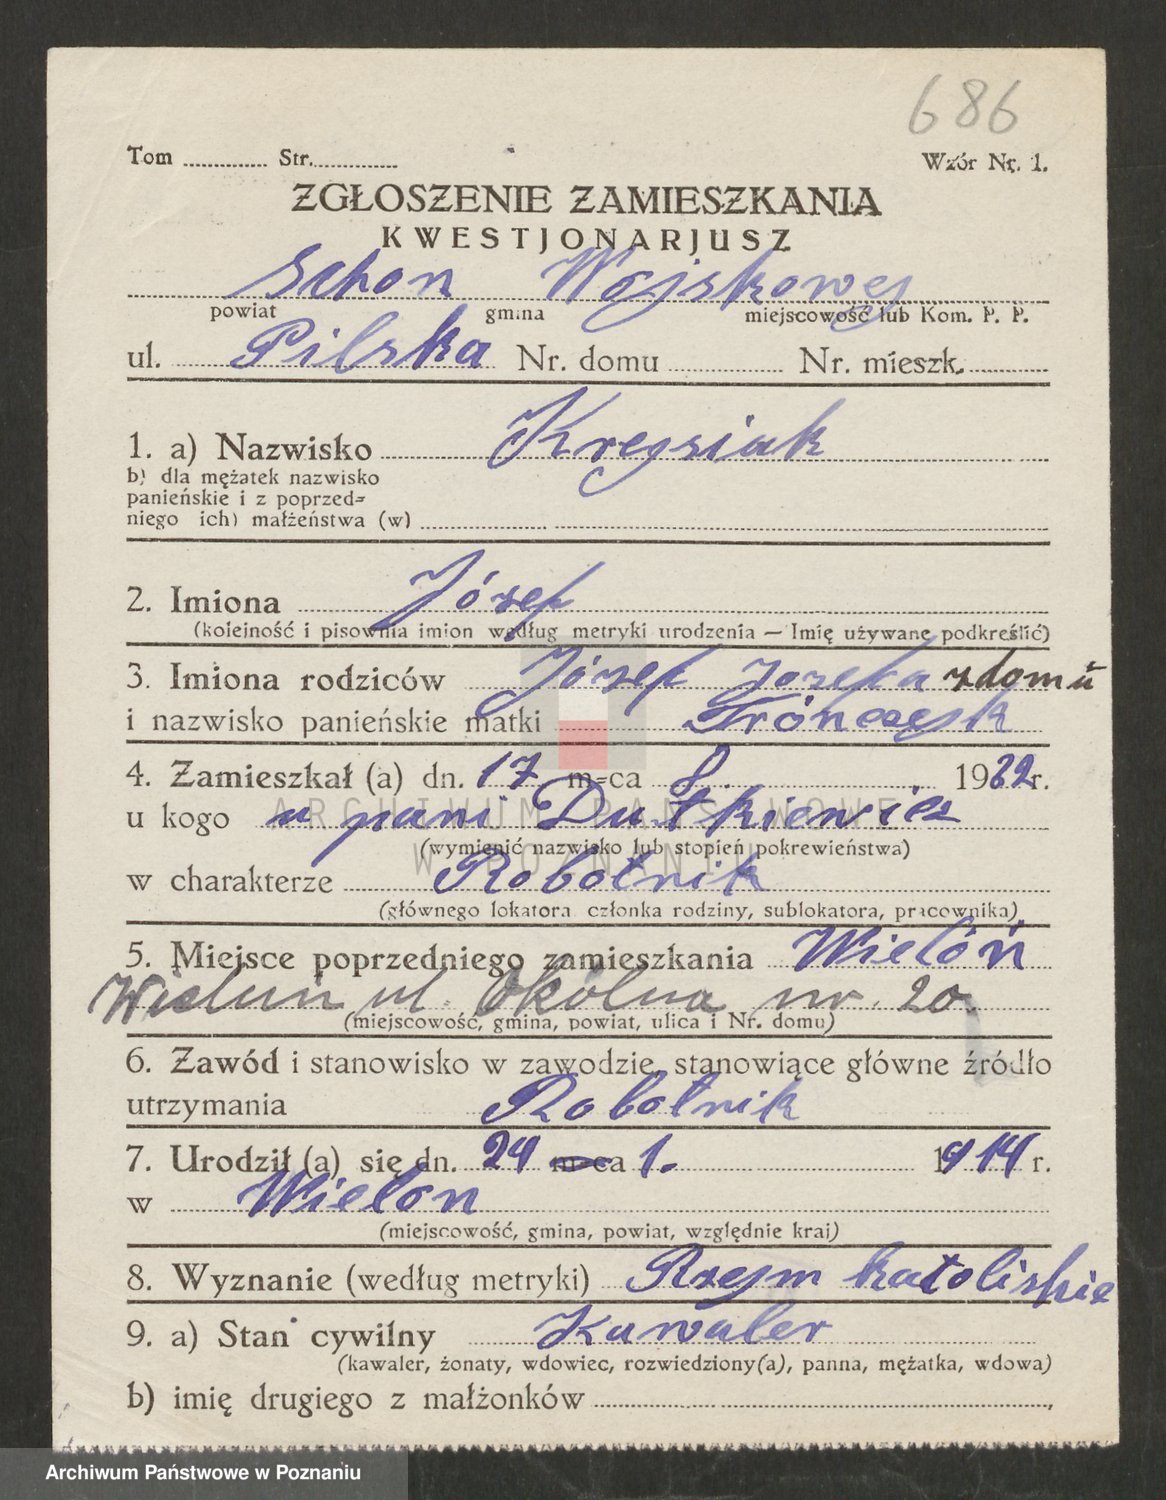 686
Tom ............ Str. ............
Wzór Nr. 1.
ZGŁOSZENIE ZAMIESZKANIA
KWESTJONARJUSZ
Schon Wojskowej
powiat gmina miejscowość lub Kom. P. P.
ul. Pilska Nr. domu ............ Nr. mieszk. ............
1. a) Nazwisko Kregsiak
b) dla mężatek nazwisko
panieńskie i z poprzed-
niego ich) małżeństwa (w) ............
2. Imiona Józef
(kolejność i pisownia imion według metryki urodzenia — Imię używane podkreślić)
3. Imiona rodziców Józef Jozefa z domu
i nazwisko panieńskie matki
4. Zamieszkał (a) dn. 17 m-ca 8 1932 r.
u kogo u pani Dutkiewicz
(wymienić nazwisko lub stopień pokrewieństwa)
w charakterze Robotnik
(głównego lokatora członka rodziny, sublokatora, pracownika)
5. Miejsce poprzedniego zamieszkania Wielóń
Wieluń ul. Okólna nr. 20.
(miejscowość, gmina, powiat, ulica i Nr. domu)
6. Zawód i stanowisko w zawodzie, stanowiące główne źródło
utrzymania Robotnik
7. Urodził (a) się dn. 24 m-ca 1. 1914 r.
w Wielon
(miejscowość, gmina, powiat, względnie kraj)
8. Wyznanie (według metryki) Rzym katoliskie
9. a) Stan cywilny Kawaler
(kawaler, żonaty, wdowiec, rozwiedziony(a), panna, mężatka, wdowa)
b) imię drugiego z małżonków ............
ARCHIWUM PAŃSTWOWE
W POZNANIU
Archiwum Państwowe w Poznaniu